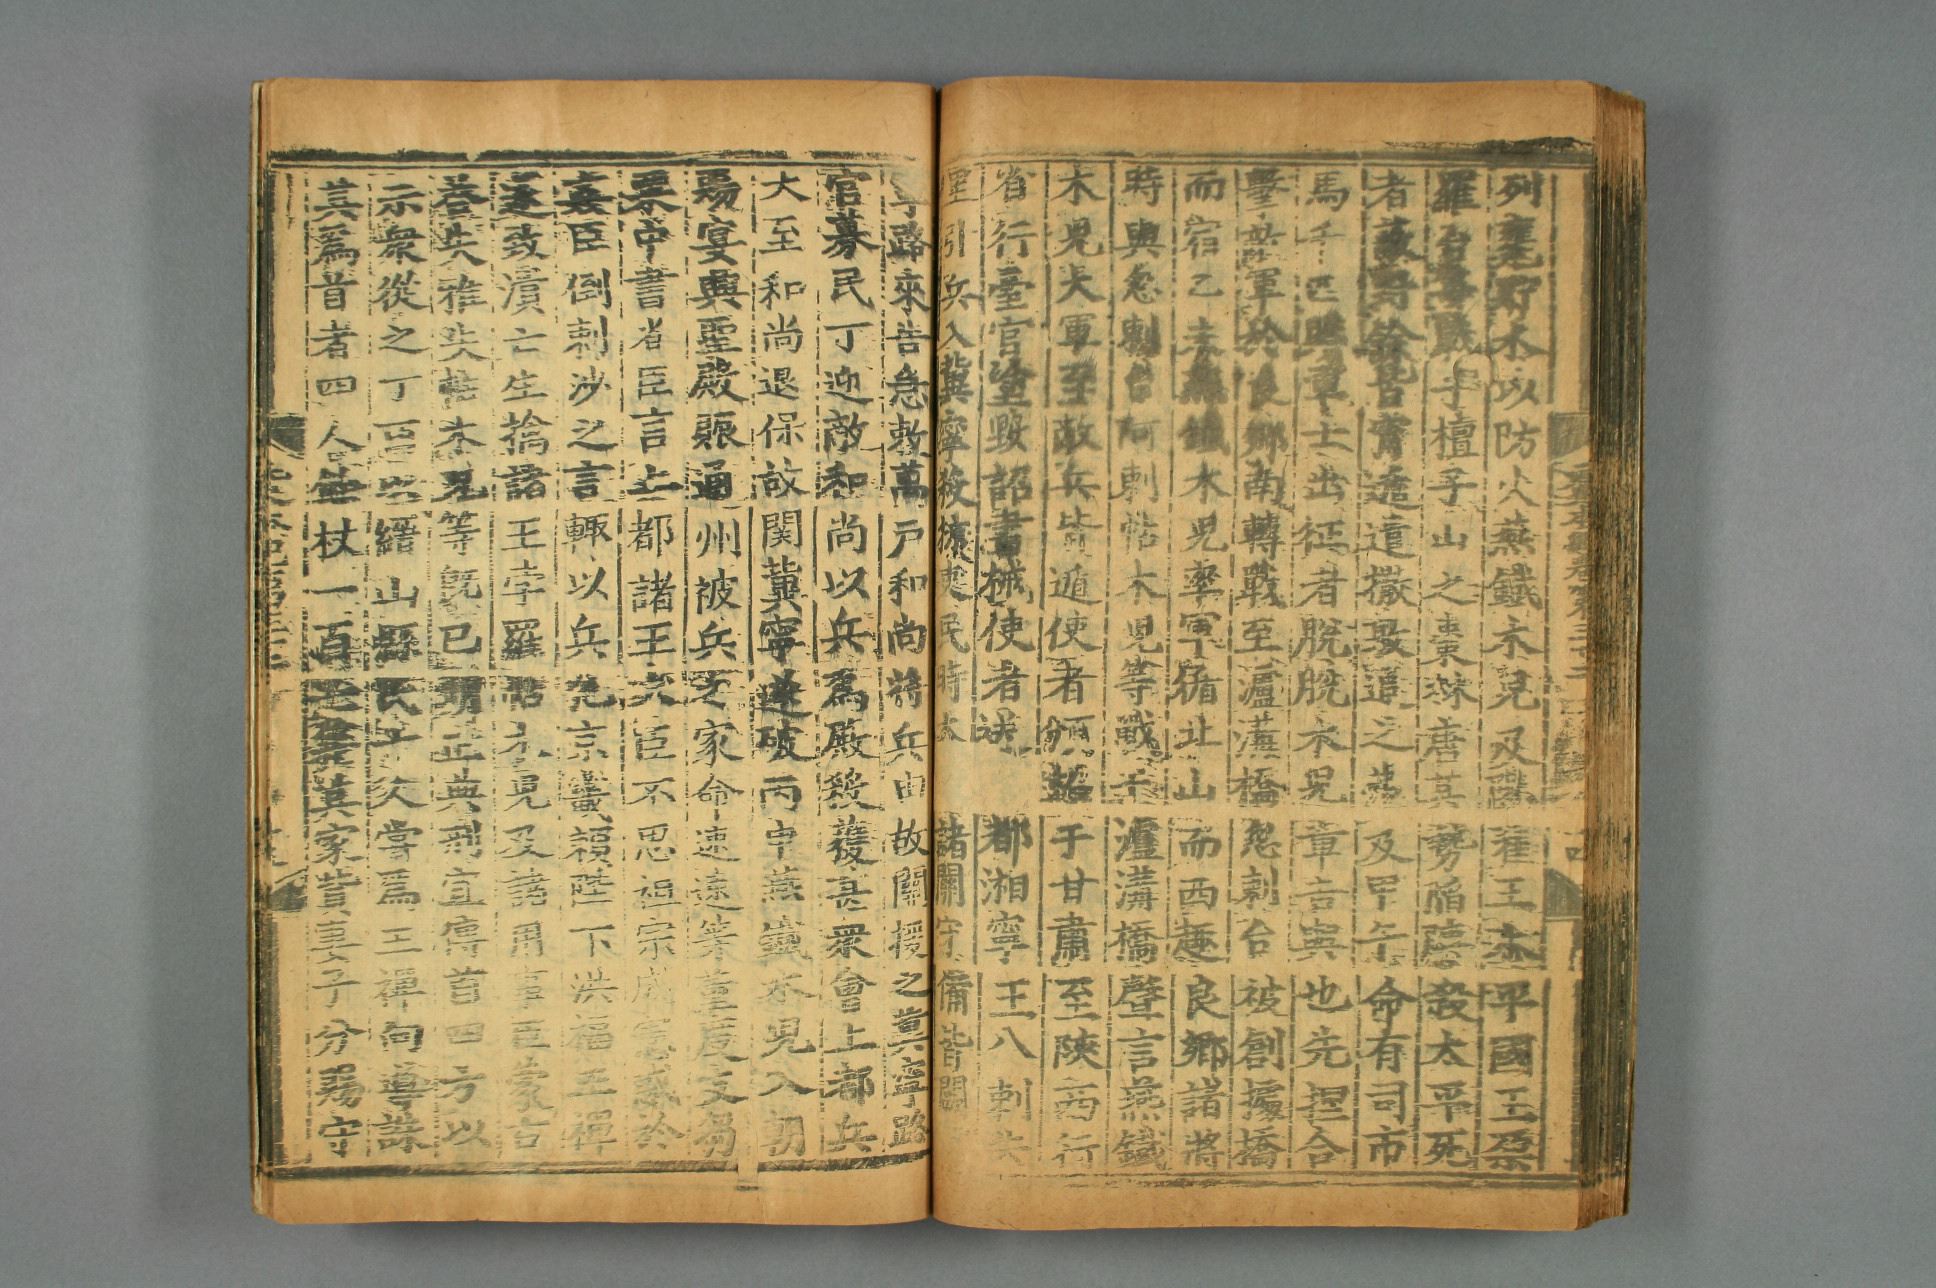 列甕貯水以防火燕鐵木兒及陽翟王太平國王朶
羅台等戰于檀子山之棗林唐其勢陷陣殺太平死
者蔽野餘皆宵遁遣撒敦追之弗及甲午命有司市
馬千匹賜軍士出征者脫脫木兒章吉與也先捏合
擊敵軍於良鄉南轉戰至瀘溝橋忽剌台被創據橋
而宿乙未燕鐵木兒率軍循北山而西趣良鄉諸將
時與忽剌台阿剌帖木兒等戰于瀘溝橋聲言燕鐵
木兒大軍至敵兵皆遁使者頒詔于甘肅至陝西行
省行臺官塗毀詔書械使者送都湘寧王八剌失
里引兵入冀寧殺掠吏民時太諸關守備皆闕
寧路來告急敕萬戶和尚將兵由故關援之冀寧路
官募民丁迎敵和尚以兵爲殿殺獲甚衆會上都兵
大至和尚退保故關冀寧遂破丙申燕鐵木兒入朝
賜宴興聖殿賑通州被兵之家命速速等董度支芻
粟中書省臣言上都諸王大臣不思祖宗成憲惑於
嘉臣倒剌沙之言輒以兵犯京畿賴陛下洪福王禪
遂致潰亡生擒諸王孛羅帖木兒及諸用事臣蒙古
答失雅失帖木兒等旣已明正典刑宜傳首四方以
示衆從之丁酉縉山縣民十人嘗爲王禪向導誅
其爲首者四人餘杖一百七籍其家貲妻子分賜守